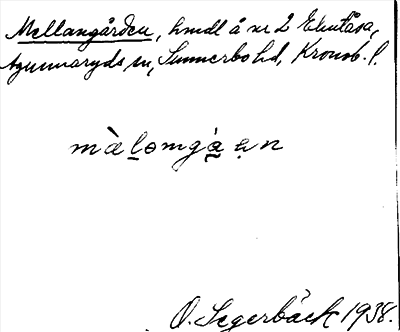 Mellangården, hmdl å nr 2 Eknäsa,
Agunnaryds sn, Sunnerbo hd, Kronob. l.
màlomgá̰ ạn
O. Segerbäck 1938.